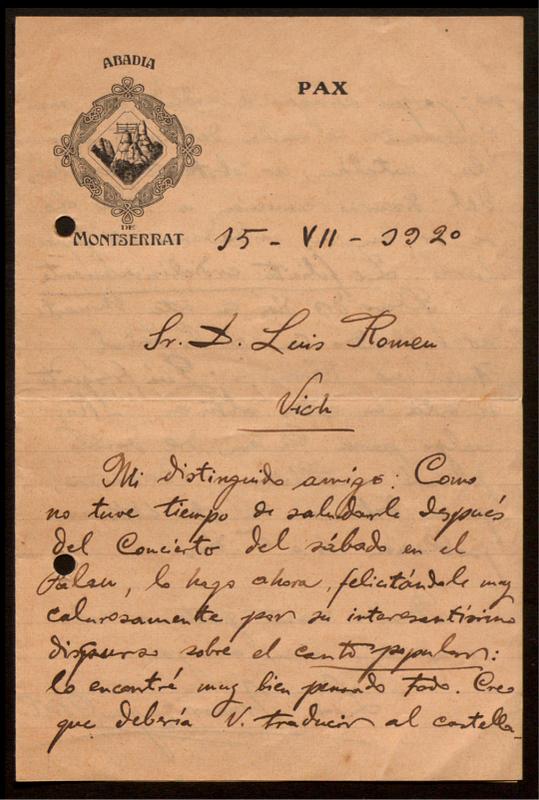 ABADIA
PAX
DE
MONTSERRAT
15 - VII - 1920
Sr. D. Luis Romeu
Vich
Mi distinguido amigo: Como
no tuve tiempo de saludarle después
del Concierto del sábado en el
Palau, lo hago ahora, felicitándole muy
calurosamente por su interesantísimo
discurso sobre el canto popular:
lo encontré muy bien pensado todo. Creo
que debería V. traducir al castella-